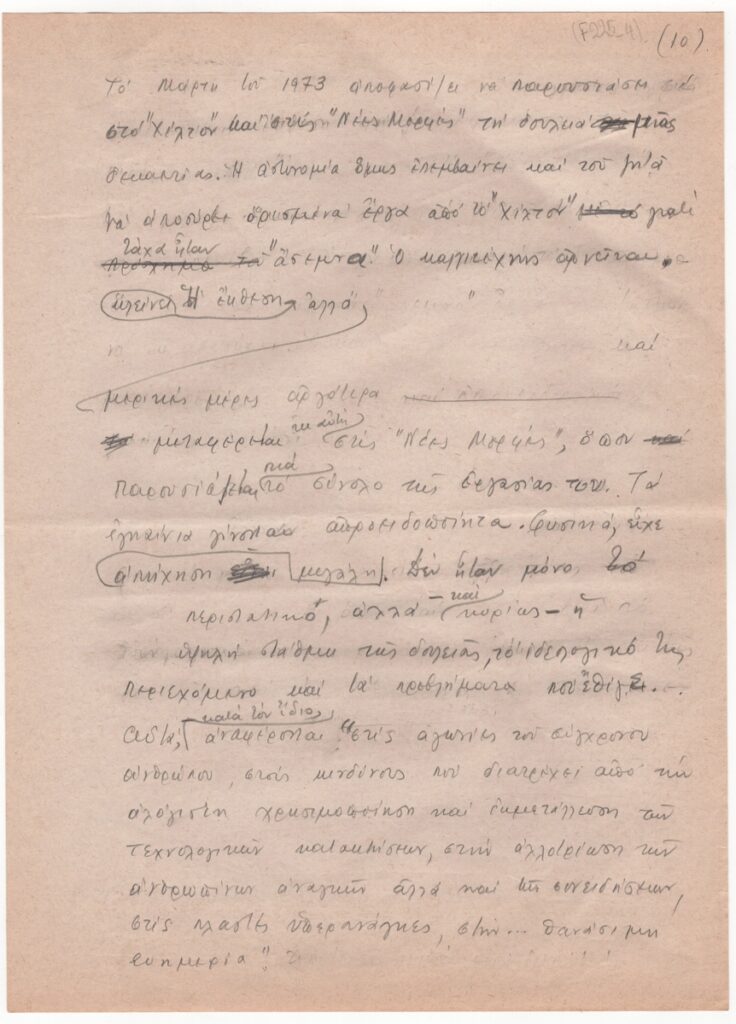 (F225_4). (10).
Τό Μάρτη τοῦ 1973 ἀποφασίζει νά παρουσιάσει
στό "Χίλτον" καί στίς "Νέες Μορφές" τή δουλειά μιᾶς
δεκαετίας. Ἡ ἀστυνομία ὅμως ἐπεμβαίνει καί τοῦ ζητᾶ
νά ἀποσύρει ὁρισμένα ἔργα ἀπό τό "Χίλτον" γιατί
τάχα ἦταν
"ἄσεμνα". Ὁ καλλιτέχνης ἀρνεῖται.
κλείνει Ἡ ἔκθεση ἀλλά
καί
μερικές μέρες ἀργότερα
μεταφέρεται κι αὐτή στίς "Νέες Μορφές", ὅπου καί
παρουσιάζεται πιά τό σύνολο τῆς ἐργασίας του. Τά
ἐγκαίνια γίνονται ἀπροειδοποίητα. Φυσικά, εἶχε
ἀπήχηση μεγάλη. Δέν ἦταν μόνο τό
περιστατικό, ἀλλά – καί κυρίως – ἡ
ὑψηλή στάθμη τῆς δουλειᾶς, τό ἰδεολογικό της
περιεχόμενο καί τά προβλήματα πού ἔθιγε.
Αὐτά, κατά τόν ἴδιο, ἀναφέρονται "στίς ἀγωνίες τοῦ σύγχρονου
ἀνθρώπου, στούς κινδύνους πού διατρέχει ἀπό τήν
ἀλόγιστη χρησιμοποίηση καί ἐκμετάλλευση τῶν
τεχνολογικῶν κατακτήσεων, στήν ἀλλοτρίωση τῶν
ἀνθρωπίνων ἀναγκῶν ἀλλά καί τῆς συνειδήσεως,
στίς πλαστές ὑπερανάγκες, στήν... θανάσιμη
εὐημερία".